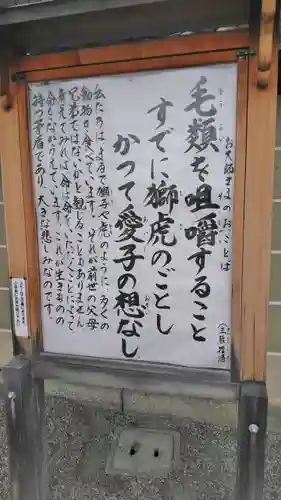 お大師さまのおことば
毛類を咀嚼すること
すでに獅虎のごとし
かつて愛子の想なし
私たちはまるで獅子や虎のように、多くの
動物を食べています。それが前世の父母
兄弟ではないかと観じることもありません
考えてみれば、命を食べていたゞくことによって
命をながらえています。これが生きものの
持つ矛盾であり、大きな悲しみなのです。